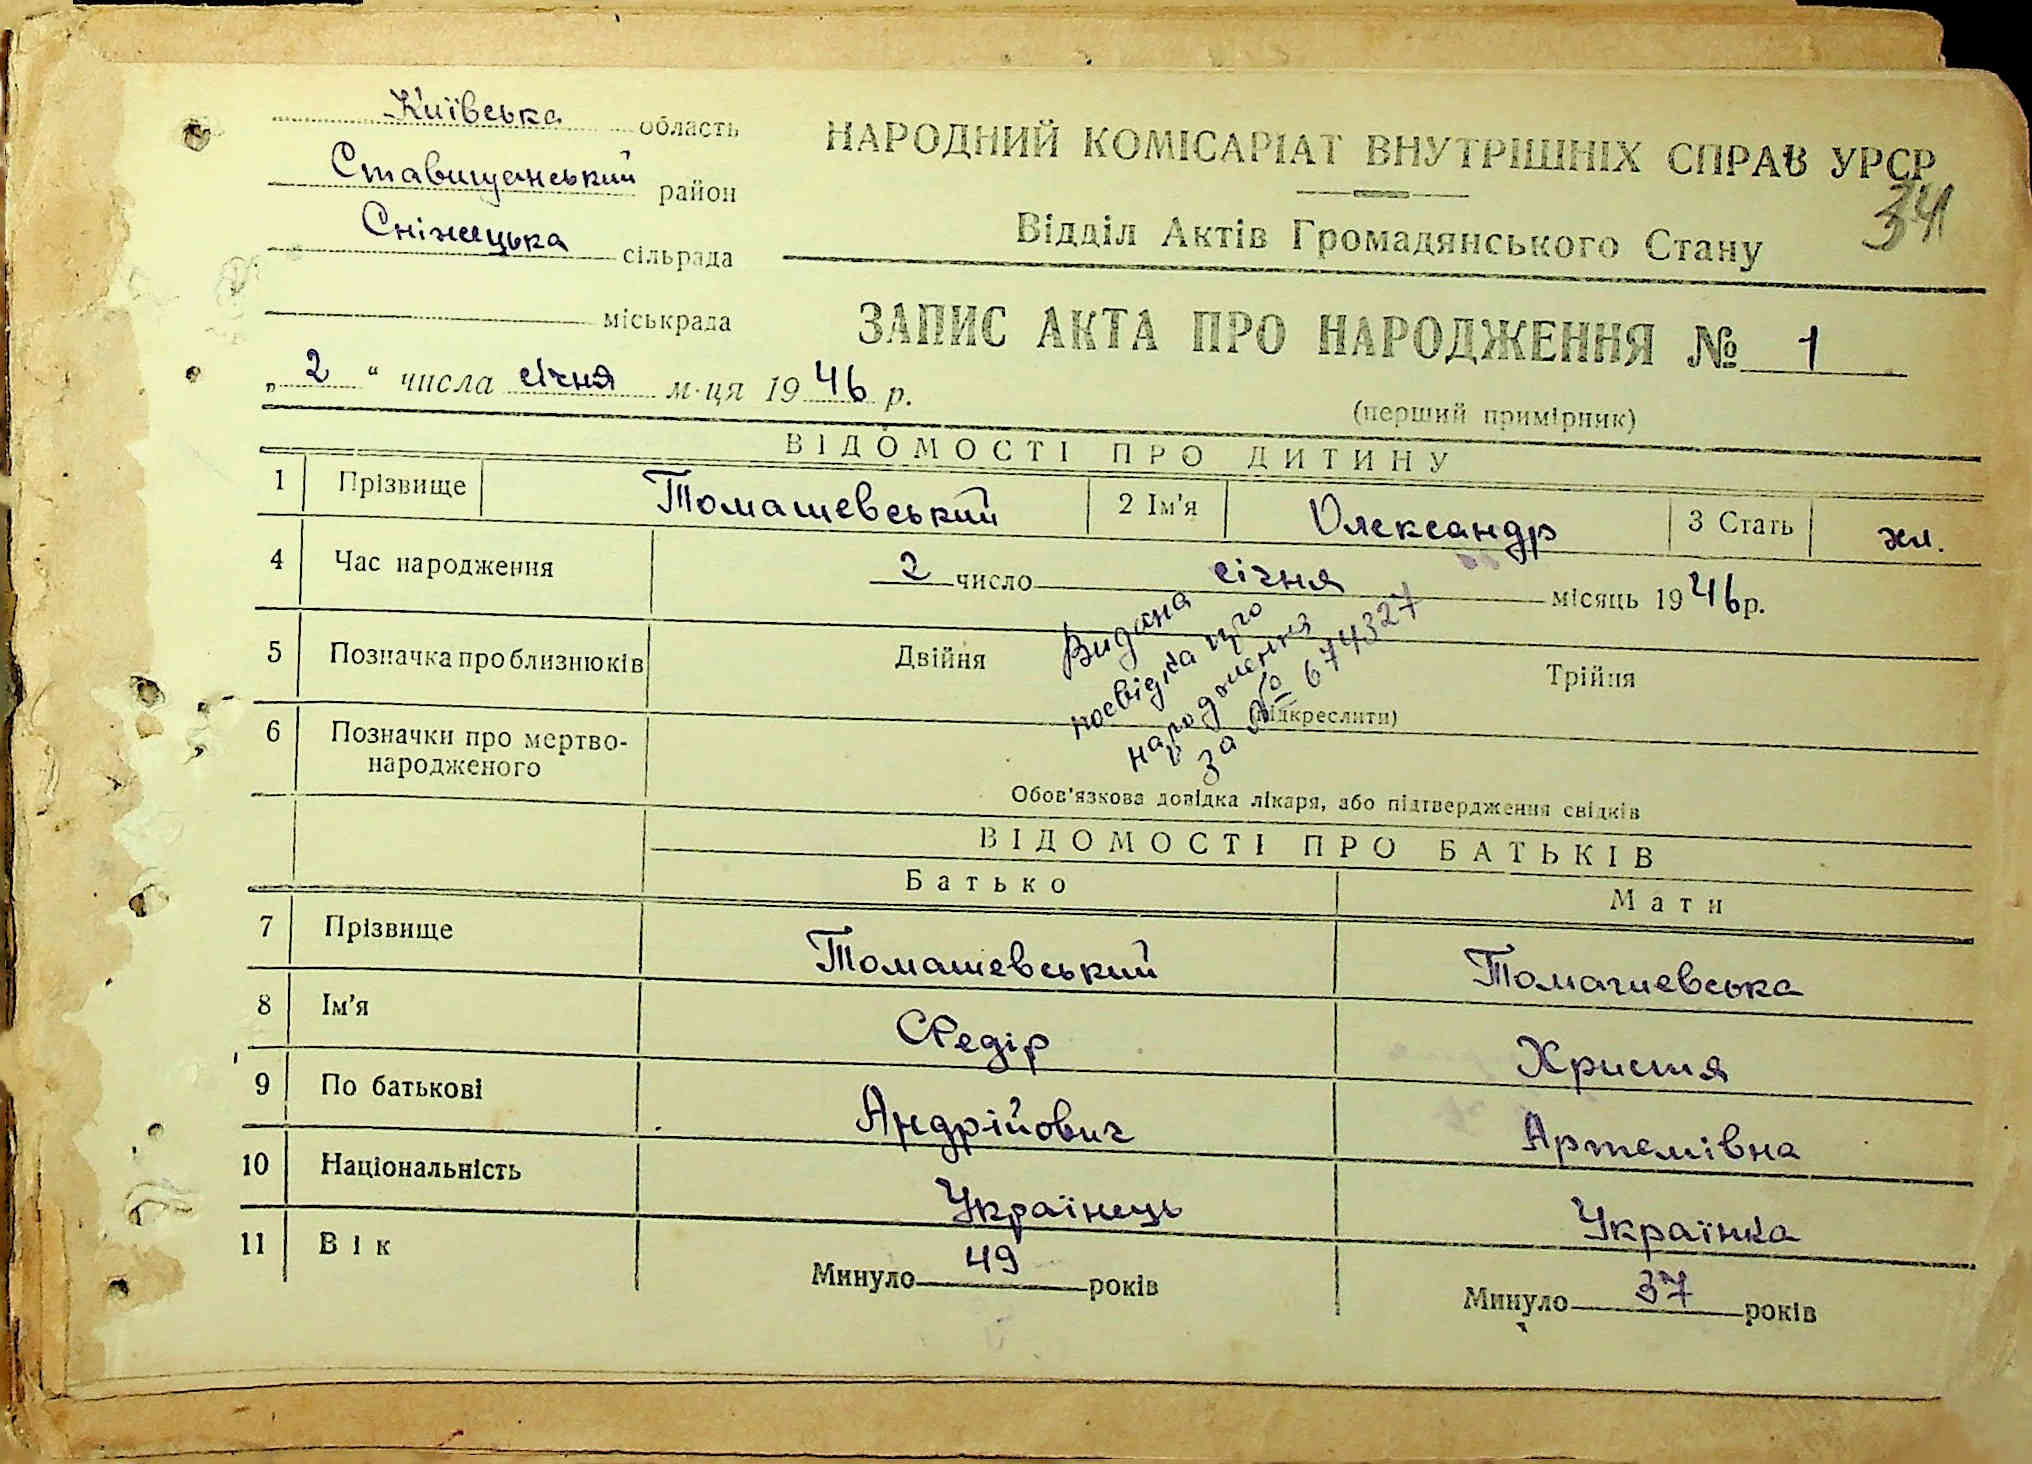 Київська область
Ставищанський район
Сніжецька сільрада
міськрада
НАРОДНИЙ КОМІСАРІАТ ВНУТРІШНІХ СПРАВ УРСР
34
Відділ Актів Громадянського Стану
ЗАПИС АКТА ПРО НАРОДЖЕННЯ № 1
„ 2 “ числа січня м-ця 1946 р.
(перший примірник)
ВІДОМОСТІ ПРО ДИТИНУ
1 Прізвище Томашевський 2 Ім'я Олександр 3 Стать
4 Час народження 2 число січня місяць 1946 р.
5 Позначка про близнюків Двійня Трійня
(підкреслити)
Видана
посвідка про
народження
за № 674327
6 Позначки про мертво-
народженого
Обов'язкова довідка лікаря, або підтвердження свідків
ВІДОМОСТІ ПРО БАТЬКІВ
Батько Мати
7 Прізвище Томашевський Томашевська
8 Ім'я Федір Христя
9 По батькові Андрійович Артемівна
10 Національність Українець Українка
11 Вік Минуло 49 років Минуло 37 років